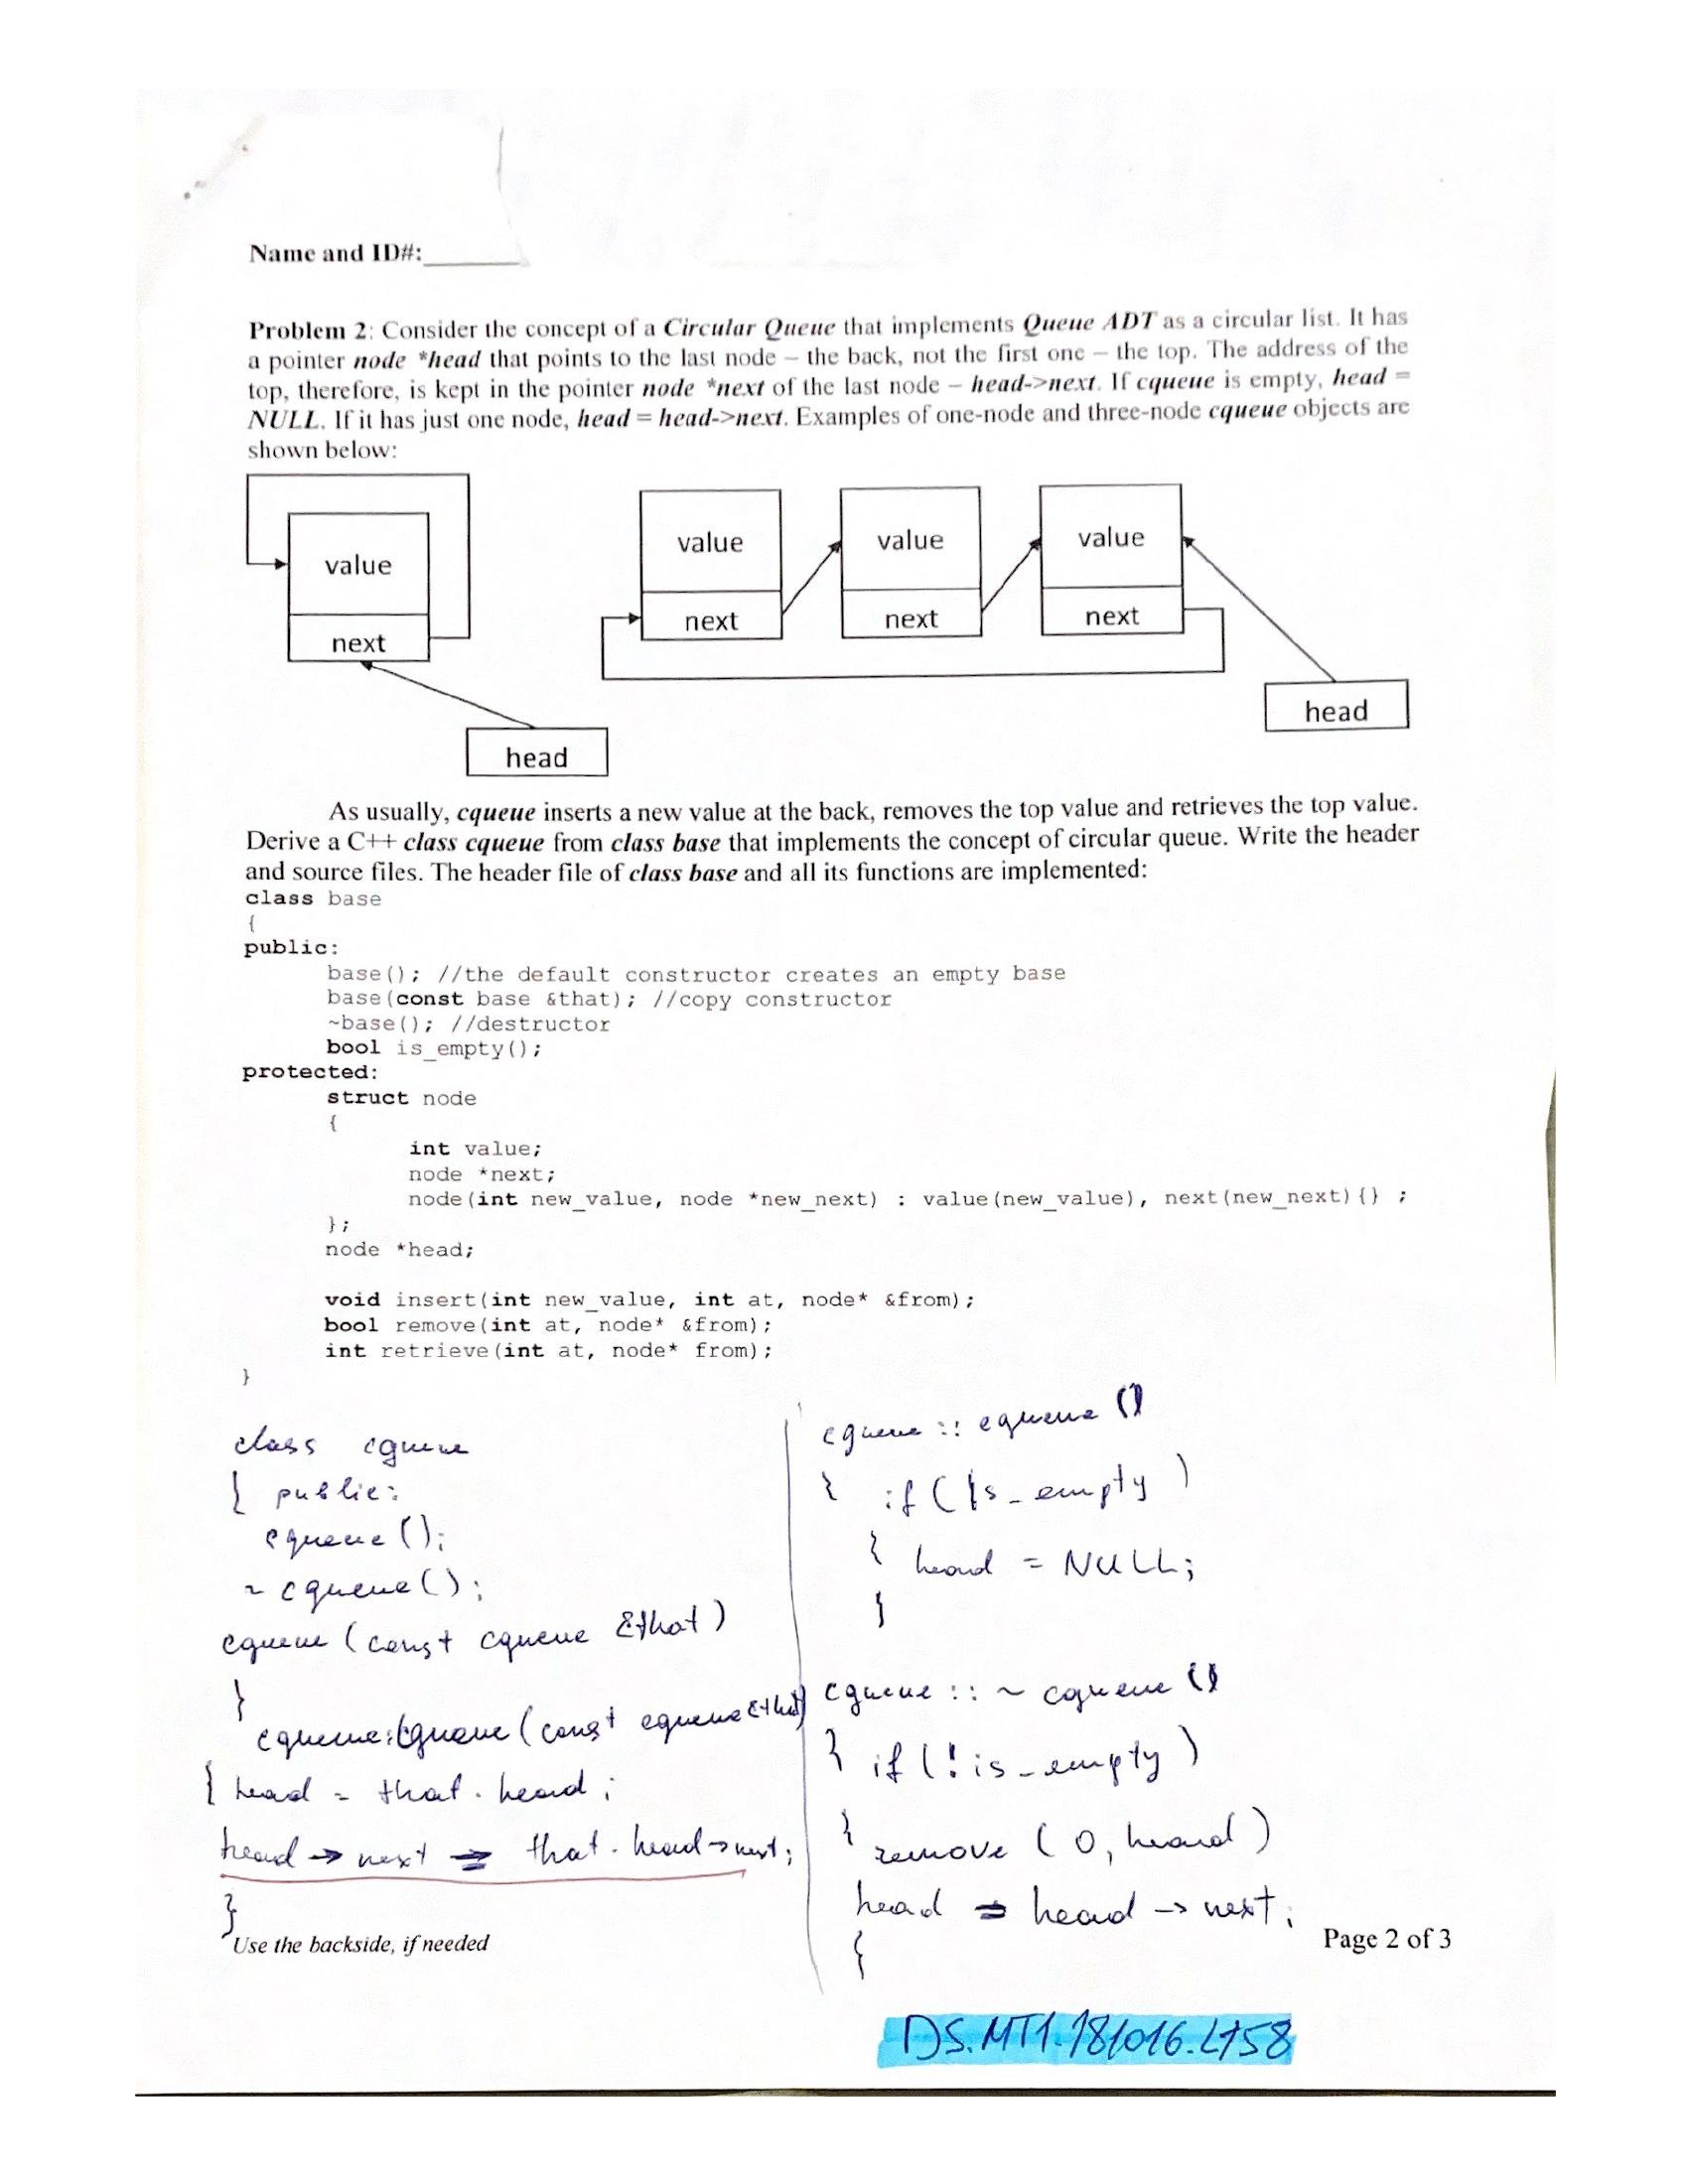 Name and ID#:_______
Problem 2: Consider the concept of a Circular Queue that implements Queue ADT as a circular list. It has
a pointer node *head that points to the last node – the back, not the first one – the top. The address of the
top, therefore, is kept in the pointer node *next of the last node – head->next. If cqueue is empty, head =
NULL. If it has just one node, head = head->next. Examples of one-node and three-node cqueue objects are
shown below:
value
next
head
value
next
value
next
value
next
head
As usually, cqueue inserts a new value at the back, removes the top value and retrieves the top value.
Derive a C++ class cqueue from class base that implements the concept of circular queue. Write the header
and source files. The header file of class base and all its functions are implemented:
class base
{
public:
base(); //the default constructor creates an empty base
base(const base &that); //copy constructor
~base(); //destructor
bool is_empty();
protected:
struct node
{
int value;
node *next;
node(int new_value, node *new_next) : value(new_value), next(new_next){} ;
};
node *head;
void insert(int new_value, int at, node* &from);
bool remove(int at, node* &from);
int retrieve(int at, node* from);
}
class cqueue
{ public:
cqueue();
~ cqueue();
cqueue (const cqueue &that)
}
cqueue::cqueue (const cqueue &that)
{ head = that . head ;
head -> next = that . head -> next ;
}
cqueue :: cqueue ()
{ if ( is_empty )
{ head = NULL;
}
cqueue :: ~ cqueue ()
} if ( ! is_empty )
{ remove ( 0, head )
head = head -> next;
{
Use the backside, if needed
Page 2 of 3
DS.MT1.181016.L158